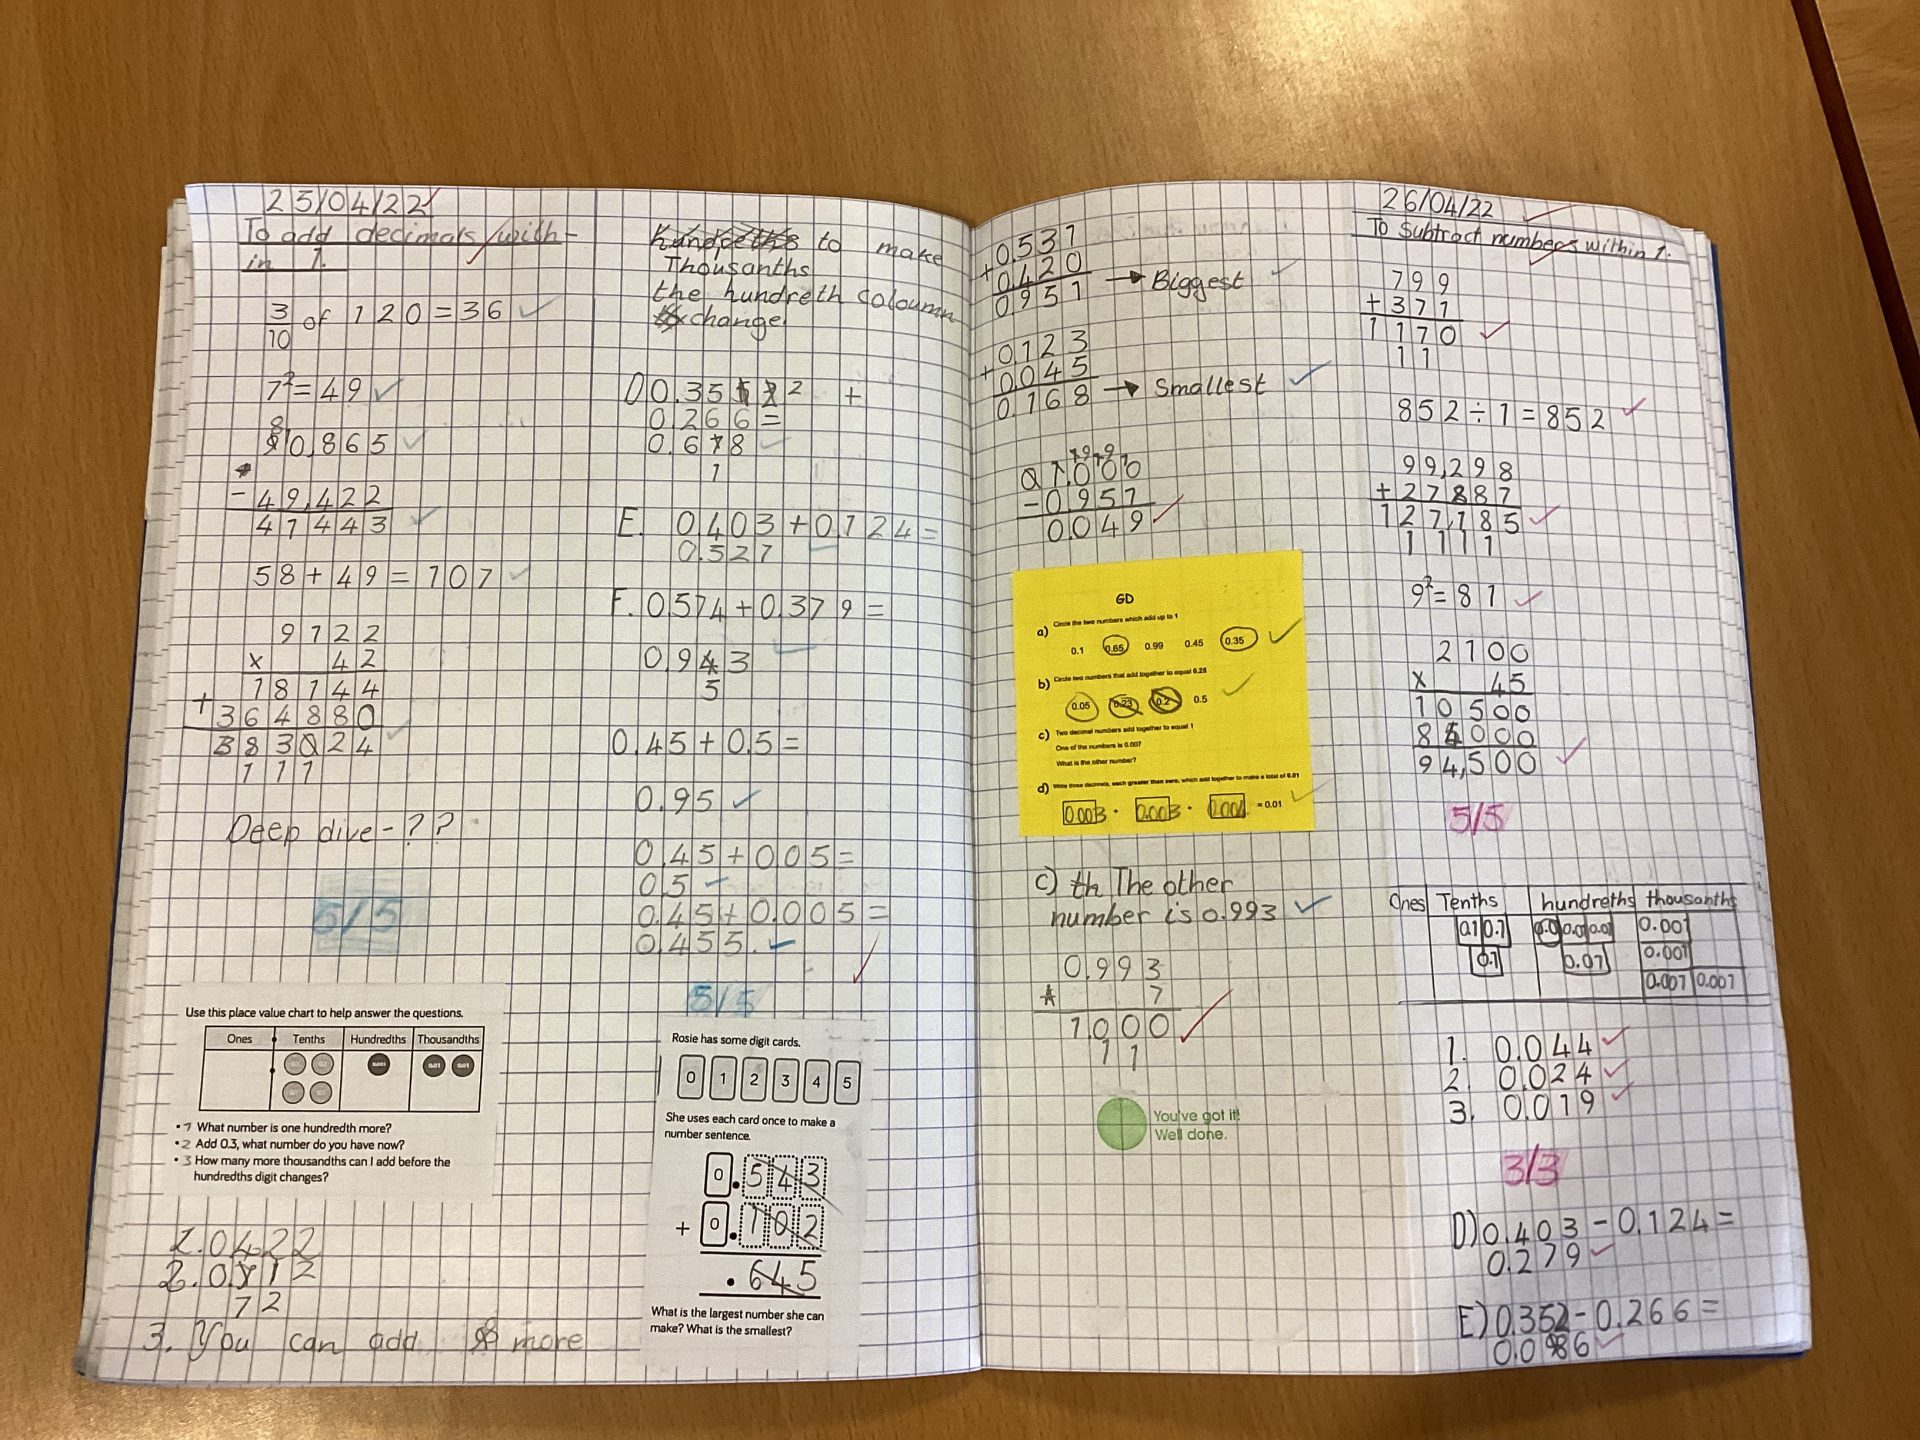 25/04/22
To add decimals with-
in 1.
3/10 of 120 = 36
7² = 49
90,865
- 49,422
41443
58 + 49 = 107
9122
x 42
18144
+ 364880
383024
111
Deep dive - ??
5/5
Use this place value chart to help answer the questions.
Ones Tenths Hundredths Thousandths
0.001 0.01 0.01
• 1 What number is one hundredth more?
• 2 Add 0.3, what number do you have now?
• 3 How many more thousandths can I add before the
hundredths digit changes?
0.422
2. 0.712
72
3. You can add 8 more
to make
Thousanths
the hundreth coloumn
change.
D 0.352 +
0.266 =
0.618
1
E. 0.403 + 0.124 =
0.527
F. 0.574 + 0.379 =
0.943
5
0.45 + 0.5 =
0.95
0.45 + 0.05 =
0.5
0.45 + 0.005 =
0.455.
5/5
Rosie has some digit cards.
0 1 2 3 4 5
She uses each card once to make a
number sentence.
0.543
+ 0.102
.645
What is the largest number she can
make? What is the smallest?
0.531
+ 0.420
0.951 → Biggest
0.123
+ 0.045
0.168 → Smallest
Q 1.000
- 0.951
0.049
GD
a) Circle the two numbers which add up to 1
0.1 0.65 0.99 0.45 0.35
b) Circle two numbers that add together to equal 0.25
0.05 0.23 0.2 0.5
c) Two decimal numbers add together to equal 1
One of the numbers is 0.007
What is the other number?
d) Write three decimals, each greater than zero, which add together to make a total of 0.01
0.003 + 0.003 + 0.004 = 0.01
c) th The other
number is 0.993
0.993
+ 7
1.000
11
You've got it!
Well done.
26/04/22
To subtract numbers within 1.
799
+ 371
1170
11
852 ÷ 1 = 852
99,298
+ 27887
127,185
1111
9² = 81
2100
x 45
10500
84000
94,500
5/5
Ones Tenths hundreths thousanths
0.1 0.1 0.0 0.01 0.01 0.001
0.1 0.01 0.001
0.001 0.001
1. 0.044
2. 0.024
3. 0.019
3/3
D) 0.403 - 0.124 =
0.279
E) 0.352 - 0.266 =
0.086